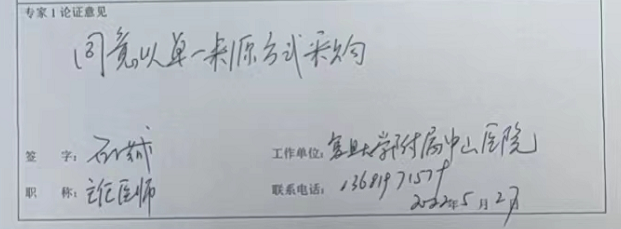 专家1论证意见
同意以单一来源方式采购
签 字: 石城 工作单位: 复旦大学附属中山医院
职 称: 主任医师 联系电话: 13681971579
2022年5月2日